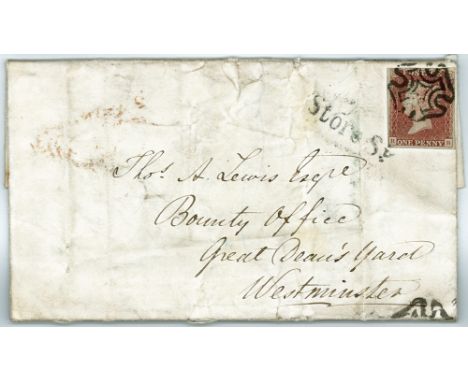 Store St
ONE PENNY
Thos. A. Lewis Esqre
Bounty Office
Great Dean's Yard
Westminster